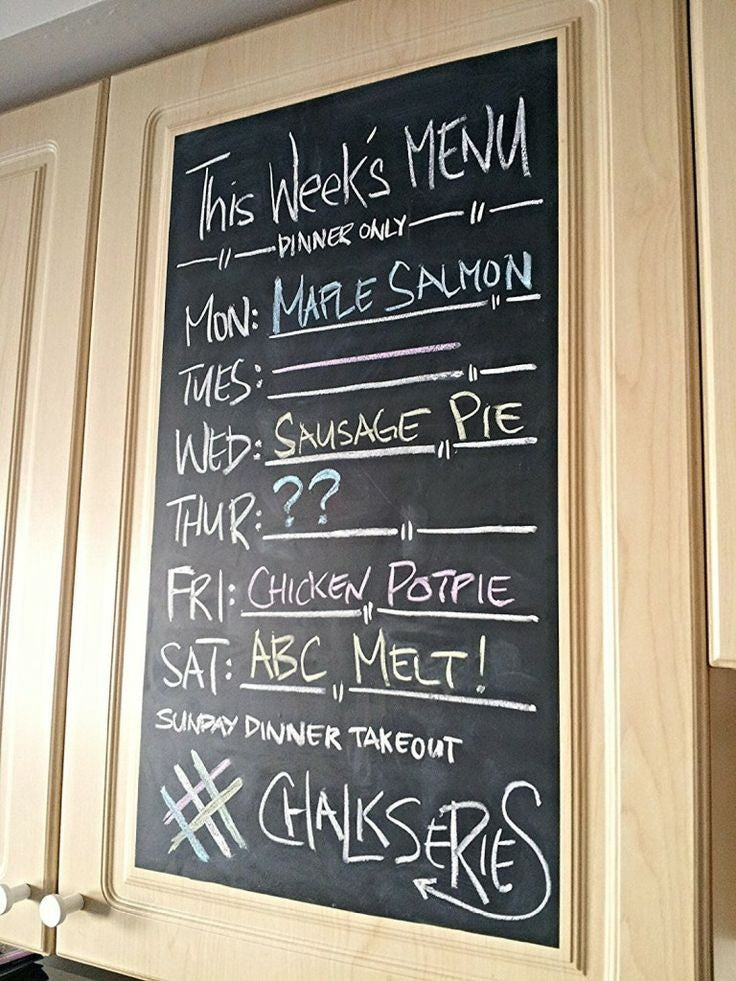 This Week's MENU
DINNER ONLY
MON: MAPLE SALMON
TUES:
WED: SAUSAGE PIE
THUR: ??
FRI: CHICKEN POTPIE
SAT: ABC MELT!
SUNDAY DINNER TAKEOUT
# CHALKSERIES